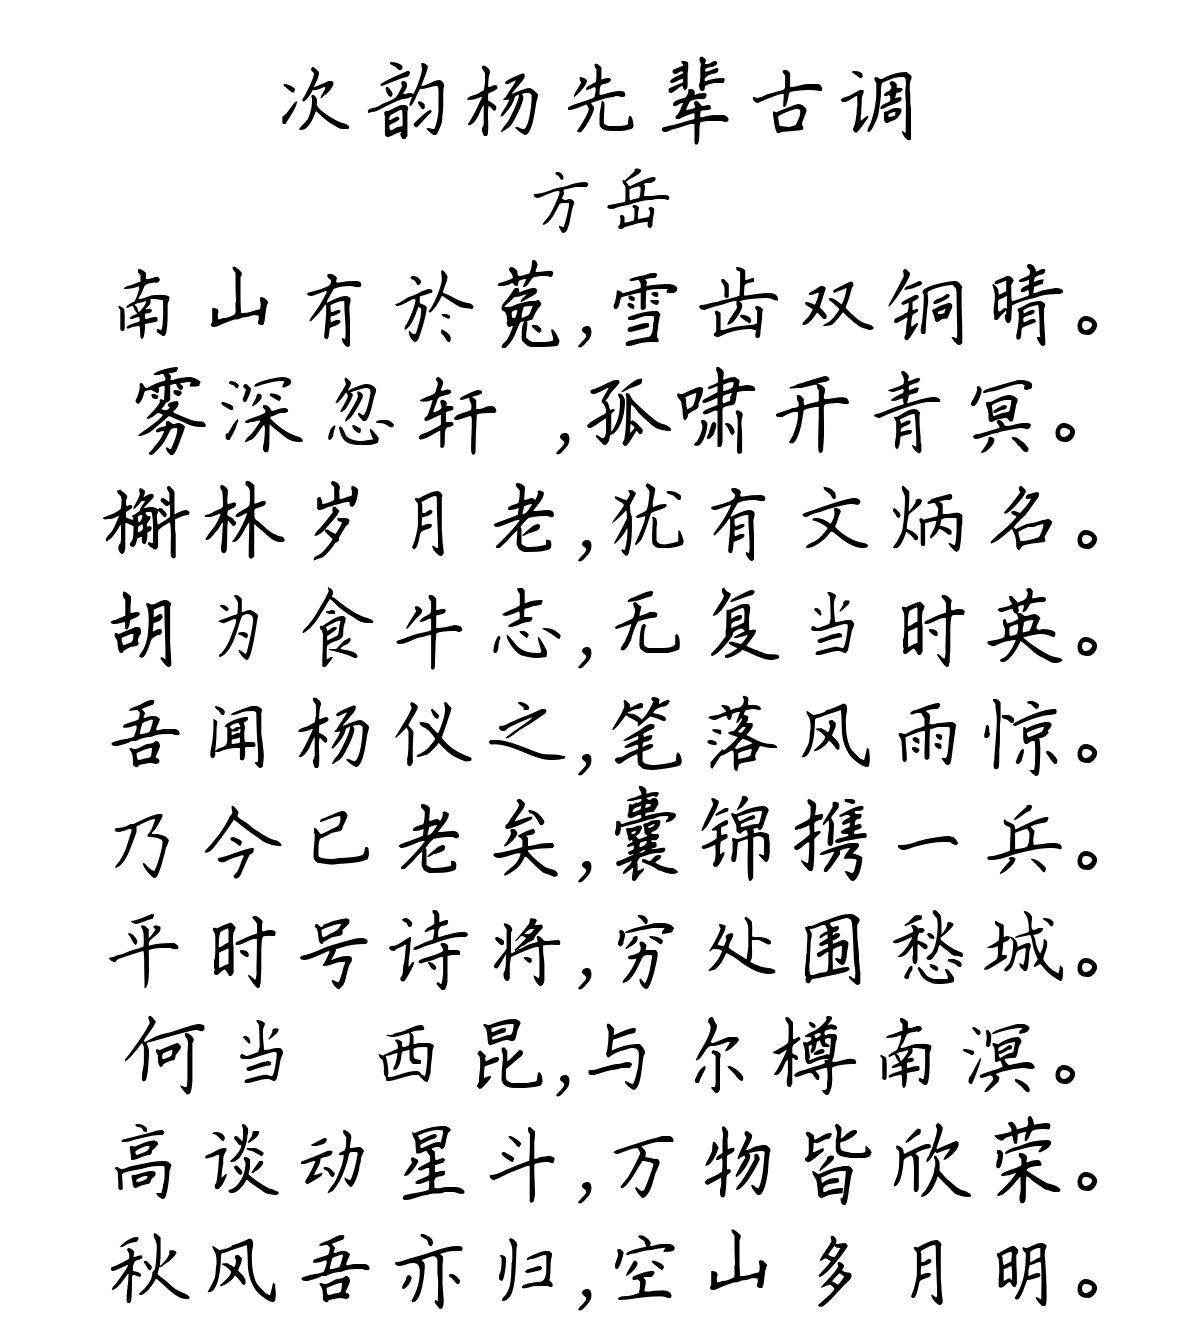 次韵杨先辈古调
方岳
南山有於菟,雪齿双铜晴。
雾深忽轩 ,孤啸开青冥。
槲林岁月老,犹有文炳名。
胡为食牛志,无复当时英。
吾闻杨仪之,笔落风雨惊。
乃今已老矣,囊锦携一兵。
平时号诗将,穷处围愁城。
何当 西昆,与尔樽南溟。
高谈动星斗,万物皆欣荣。
秋风吾亦归,空山多月明。